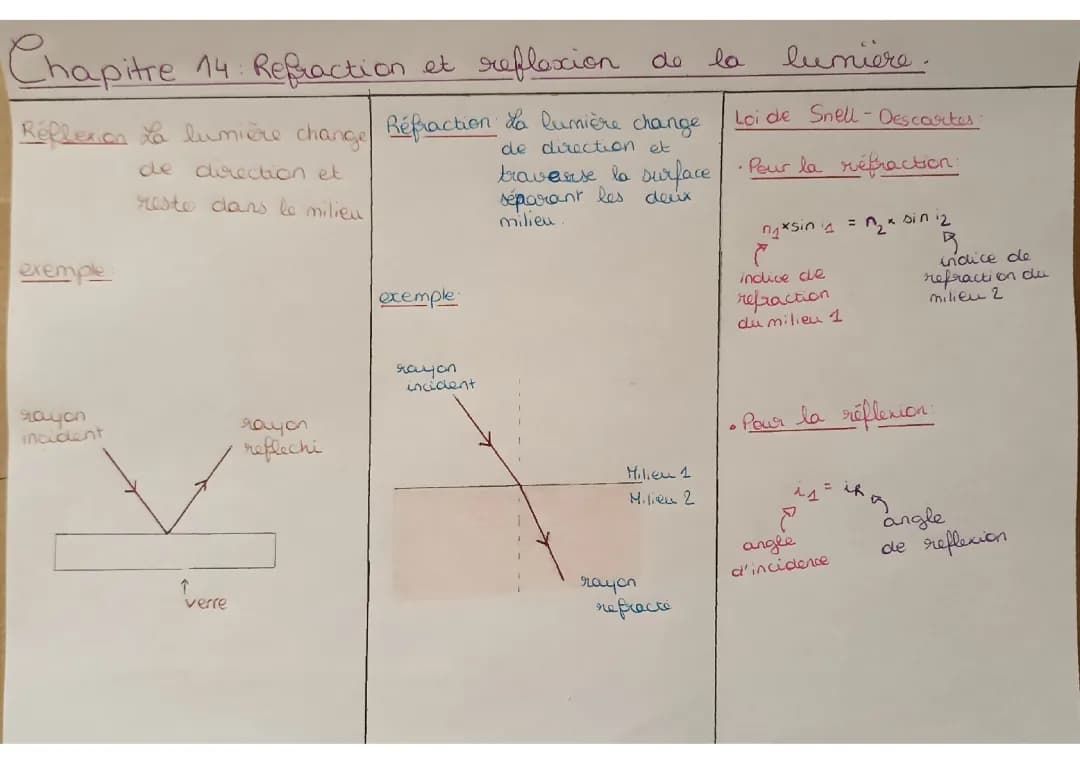 Chapitre 14: Refraction et reflexion de la lumière.
Réflexion La lumière change
de direction et
reste dans le milieu
exemple:
rayon
incident
rayon
reflechi
verre
Réfraction: La lumière change
de direction et
traverse la surface
séparant les deux
milieu.
exemple:
rayon
incident
Milieu 1
Milieu 2
rayon
refracté
Loi de Snell-Descartes:
• Pour la réfraction:
n1 × sin i1 = n2 × sin i2
indice de
refraction
du milieu 1
indice de
refraction du
milieu 2
• Pour la réflexion:
i1 = iR
angle
d'incidence
angle
de reflexion